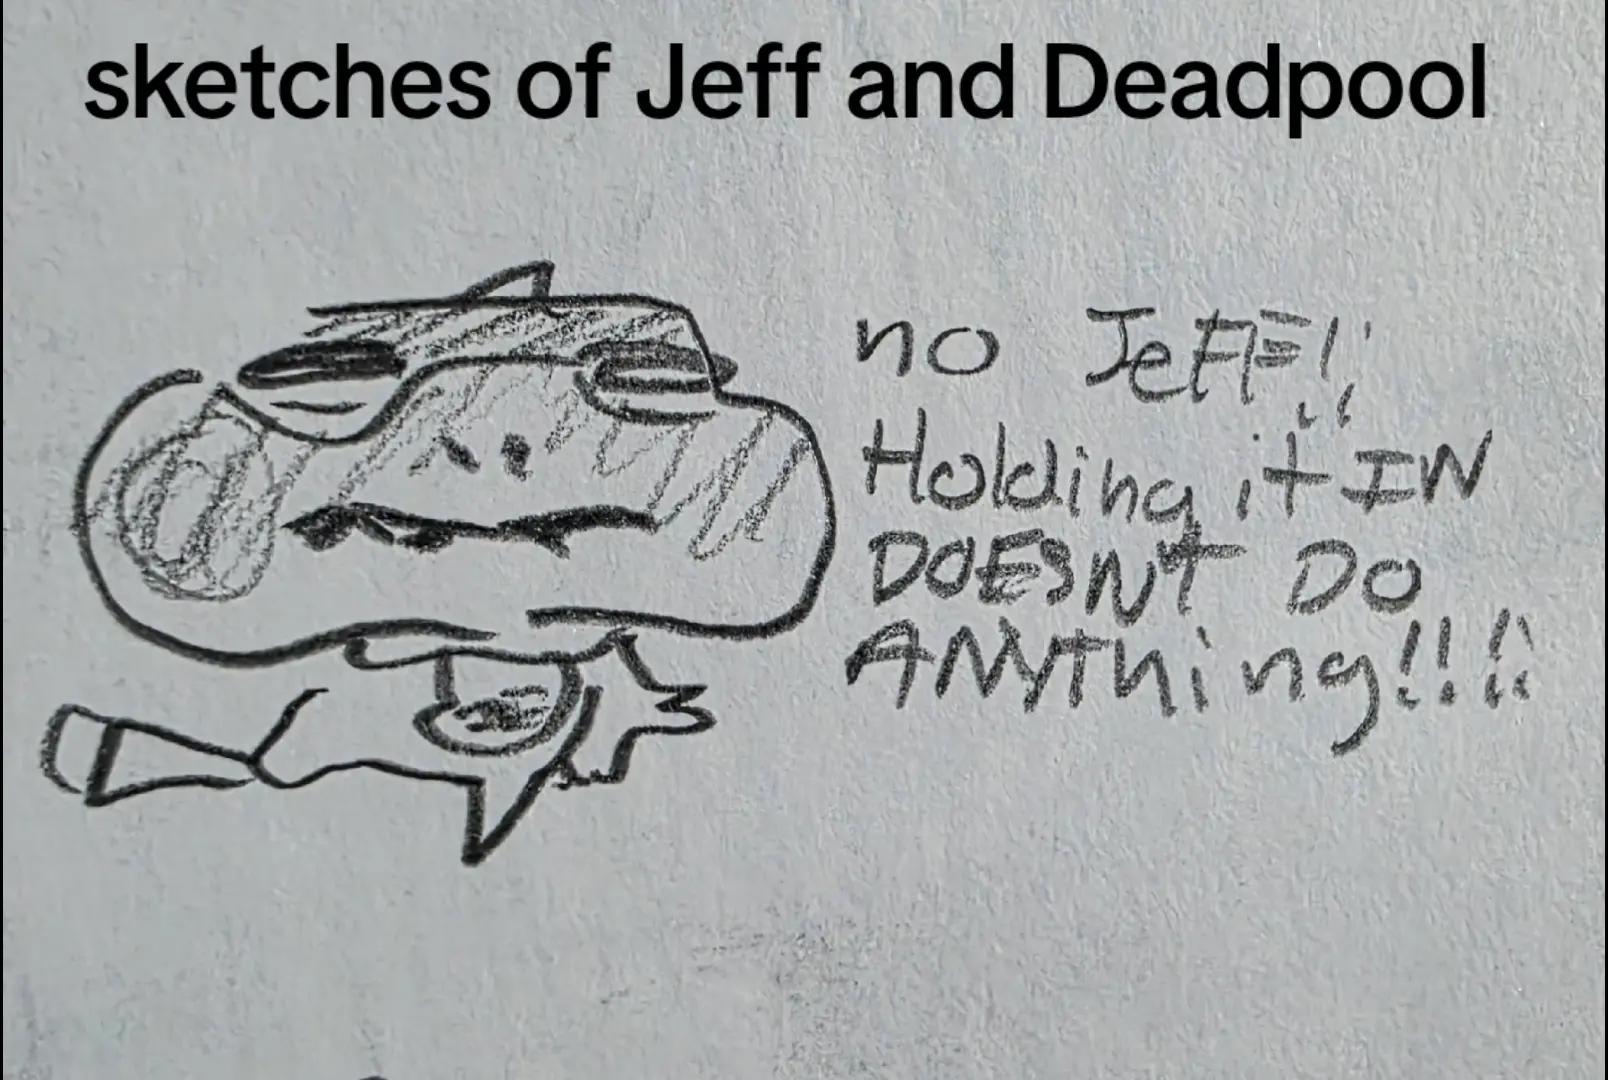 sketches of Jeff and Deadpool
no Jeff!!
Holding it IN
DOESNT DO
ANYthing!!!!